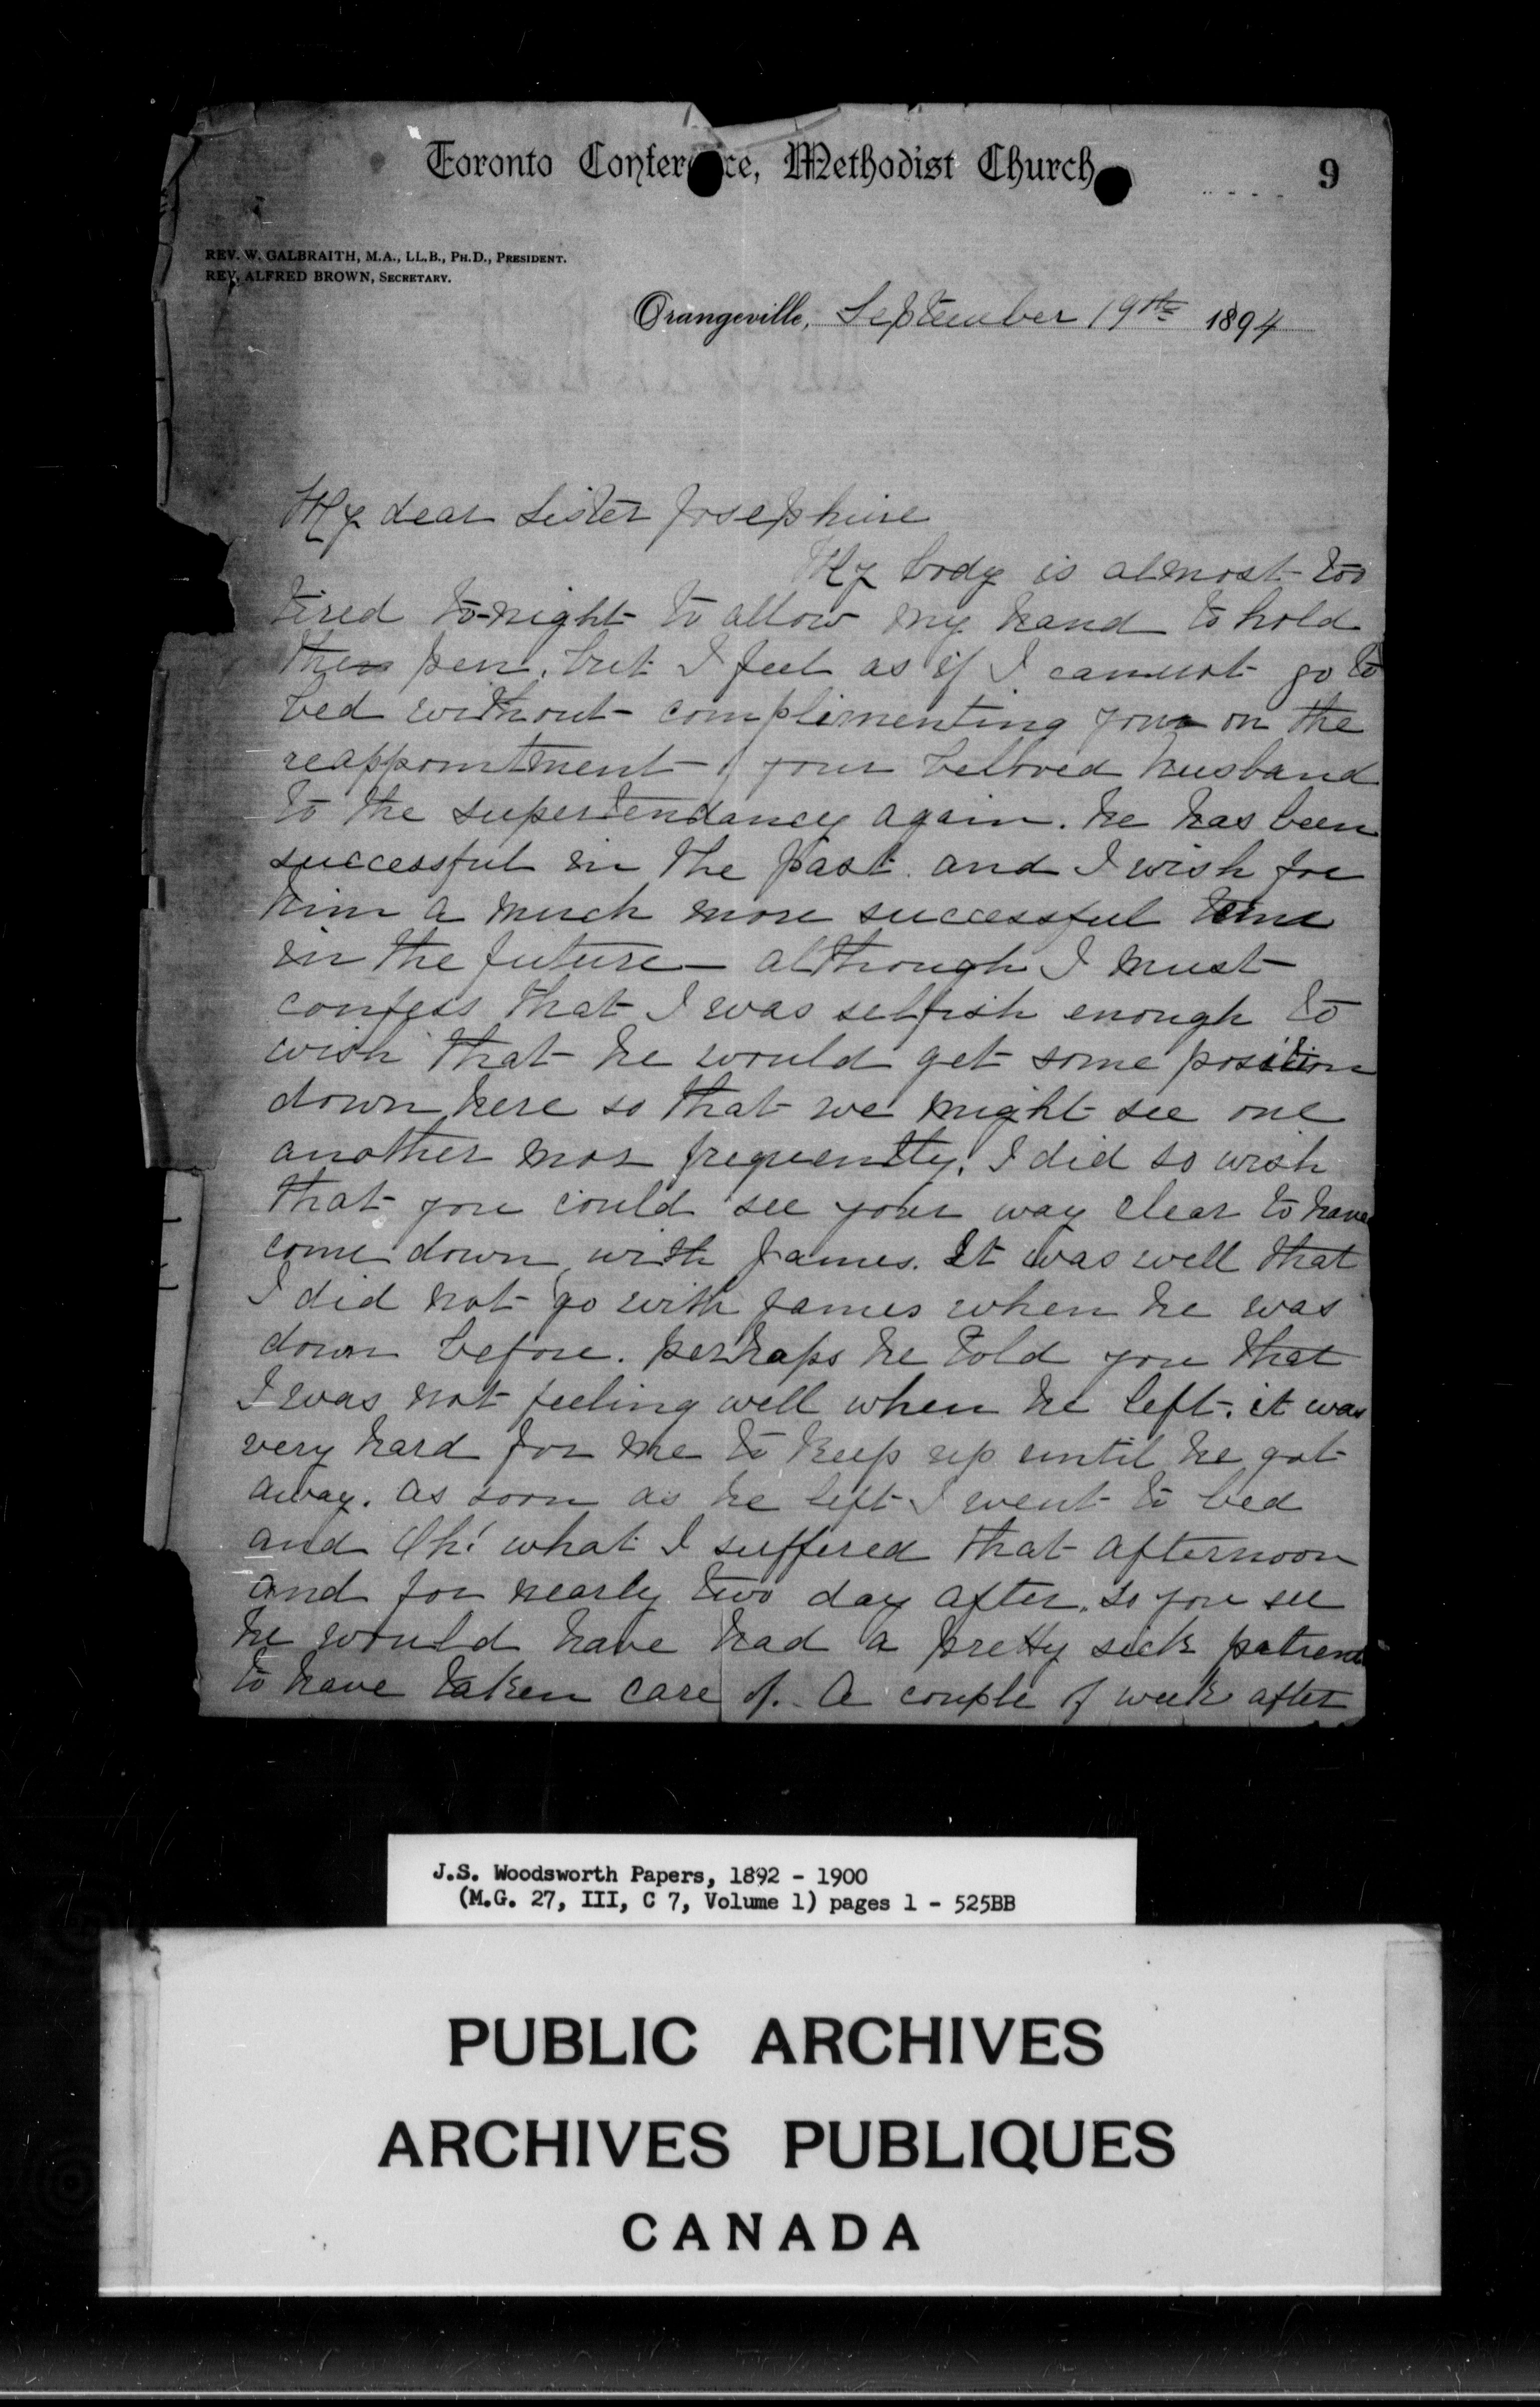 Toronto Conference, Methodist Church
9
REV. W. GALBRAITH, M.A., LL.B., PH.D., PRESIDENT.
REV. ALFRED BROWN, SECRETARY.
Orangeville, September 19th 1894
My dear Sister Josephine
My body is almost too
tired to-night to allow my hand to hold
the pen, but I feel as if I cannot go to
bed without complimenting you on the
reappointment of your beloved husband
to the supertendancy again. he has been
successful in the past. and I wish for
him a much more successful time
in the future – although I must
confess that I was selfish enough to
wish that he would get some position
down here so that we might see one
another mor frequently. I did so wish
that you could see your way clear to have
come down with James. It was well that
I did not go with James when he was
down before. perhaps he told you that
I was not feeling well when he left. it was
very hard for me to keep up until he got
away. as soon as he left I went to bed
and Oh! what I suffered that afternoon
and for nearly two day after. so you see
he would have had a pretty sick patient
to have taken care of. A couple of week after
J.S. Woodsworth Papers, 1892 - 1900
(M.G. 27, III, C 7, Volume 1) pages 1 - 525BB
PUBLIC ARCHIVES
ARCHIVES PUBLIQUES
CANADA